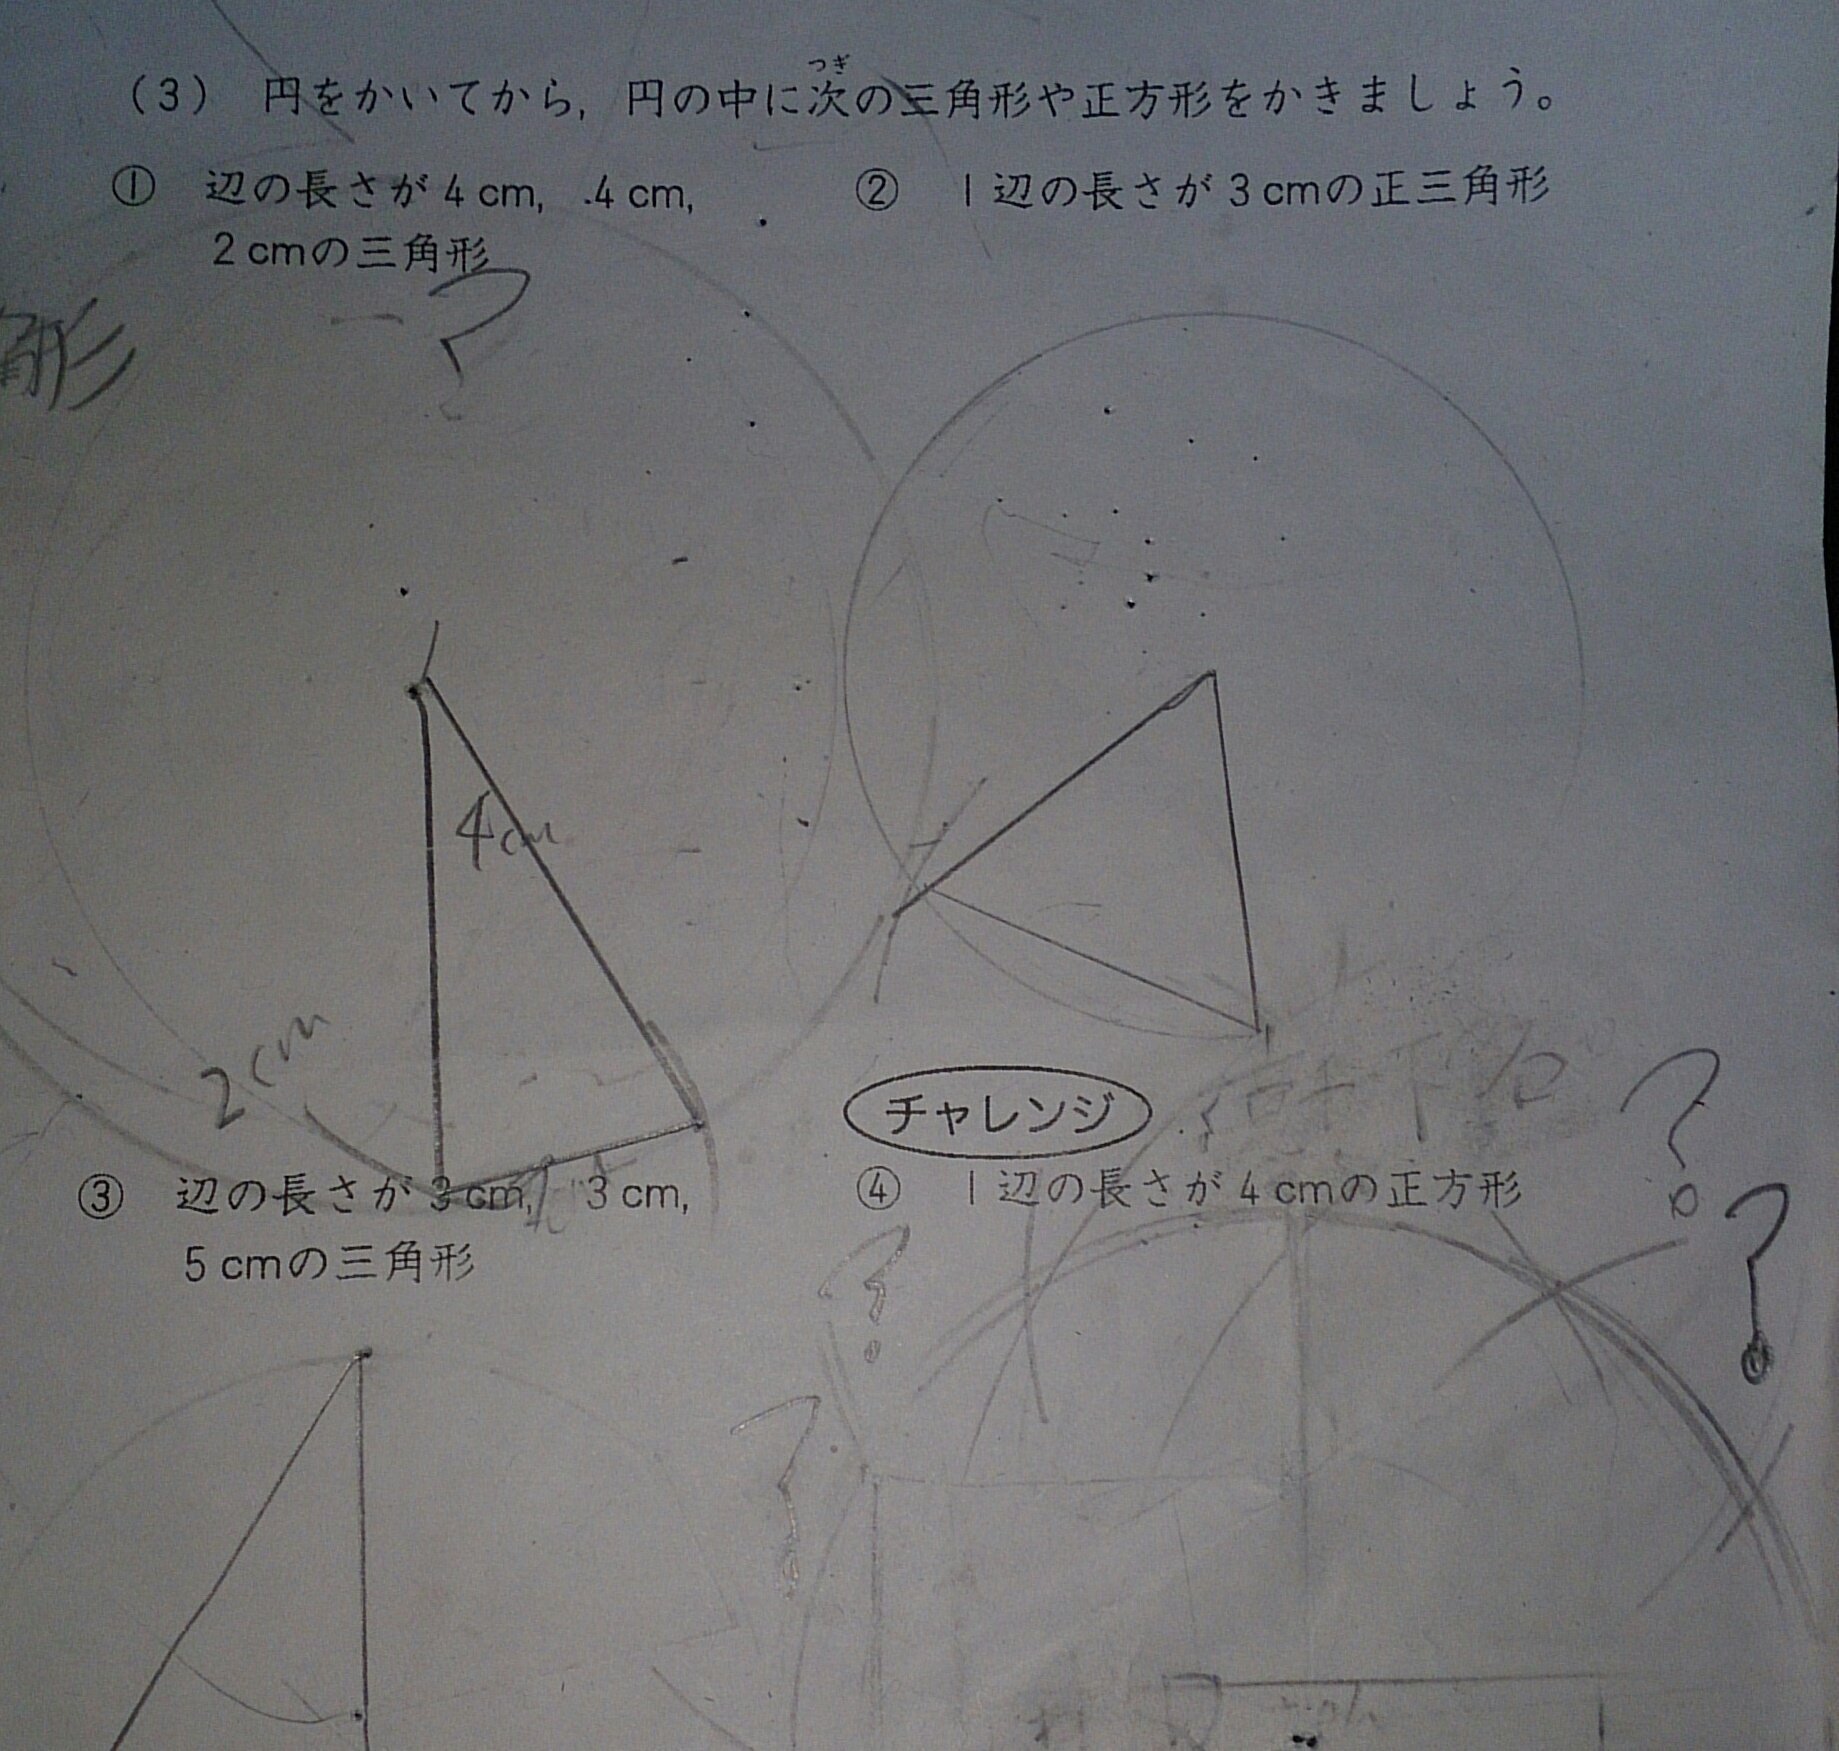 つぎ
(3) 円をかいてから，円の中に次の三角形や正方形をかきましょう。
① 辺の長さが4cm，4cm，
2cmの三角形
② 1辺の長さが3cmの正三角形
?
形
4cm
2cm
チャレンジ
?
③ 辺の長さが3cm，3cm，
5cmの三角形
④ 1辺の長さが4cmの正方形
?
?
?